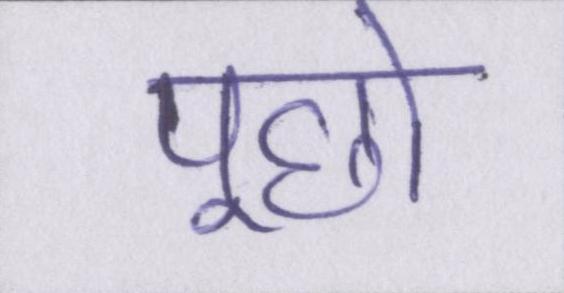 पूछो